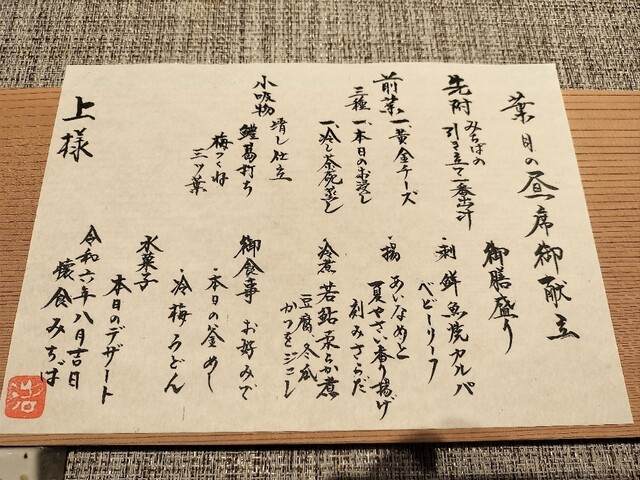 葉月の昼席御献立
先附 みちばの
引き立て一番出汁
前菜 一、黄金チーズ
三種 一、本日のお浸し
一、冷し茶碗蒸し
小吸物 清し仕立
鱧葛打ち
梅つくね
三ツ葉
上様
御膳盛り
・刺 鮮魚焼カルパ
ベビーリーフ
・揚 あいなめと
夏やさい香り揚げ
刻みさらだ
・冷煮 若鮎柔らか煮
豆腐冬瓜
かつをジュレ
御食事 お好みで
・本日の釜めし
・冷梅うどん
水菓子
本日のデザート
令和六年八月吉日
懐食みちば